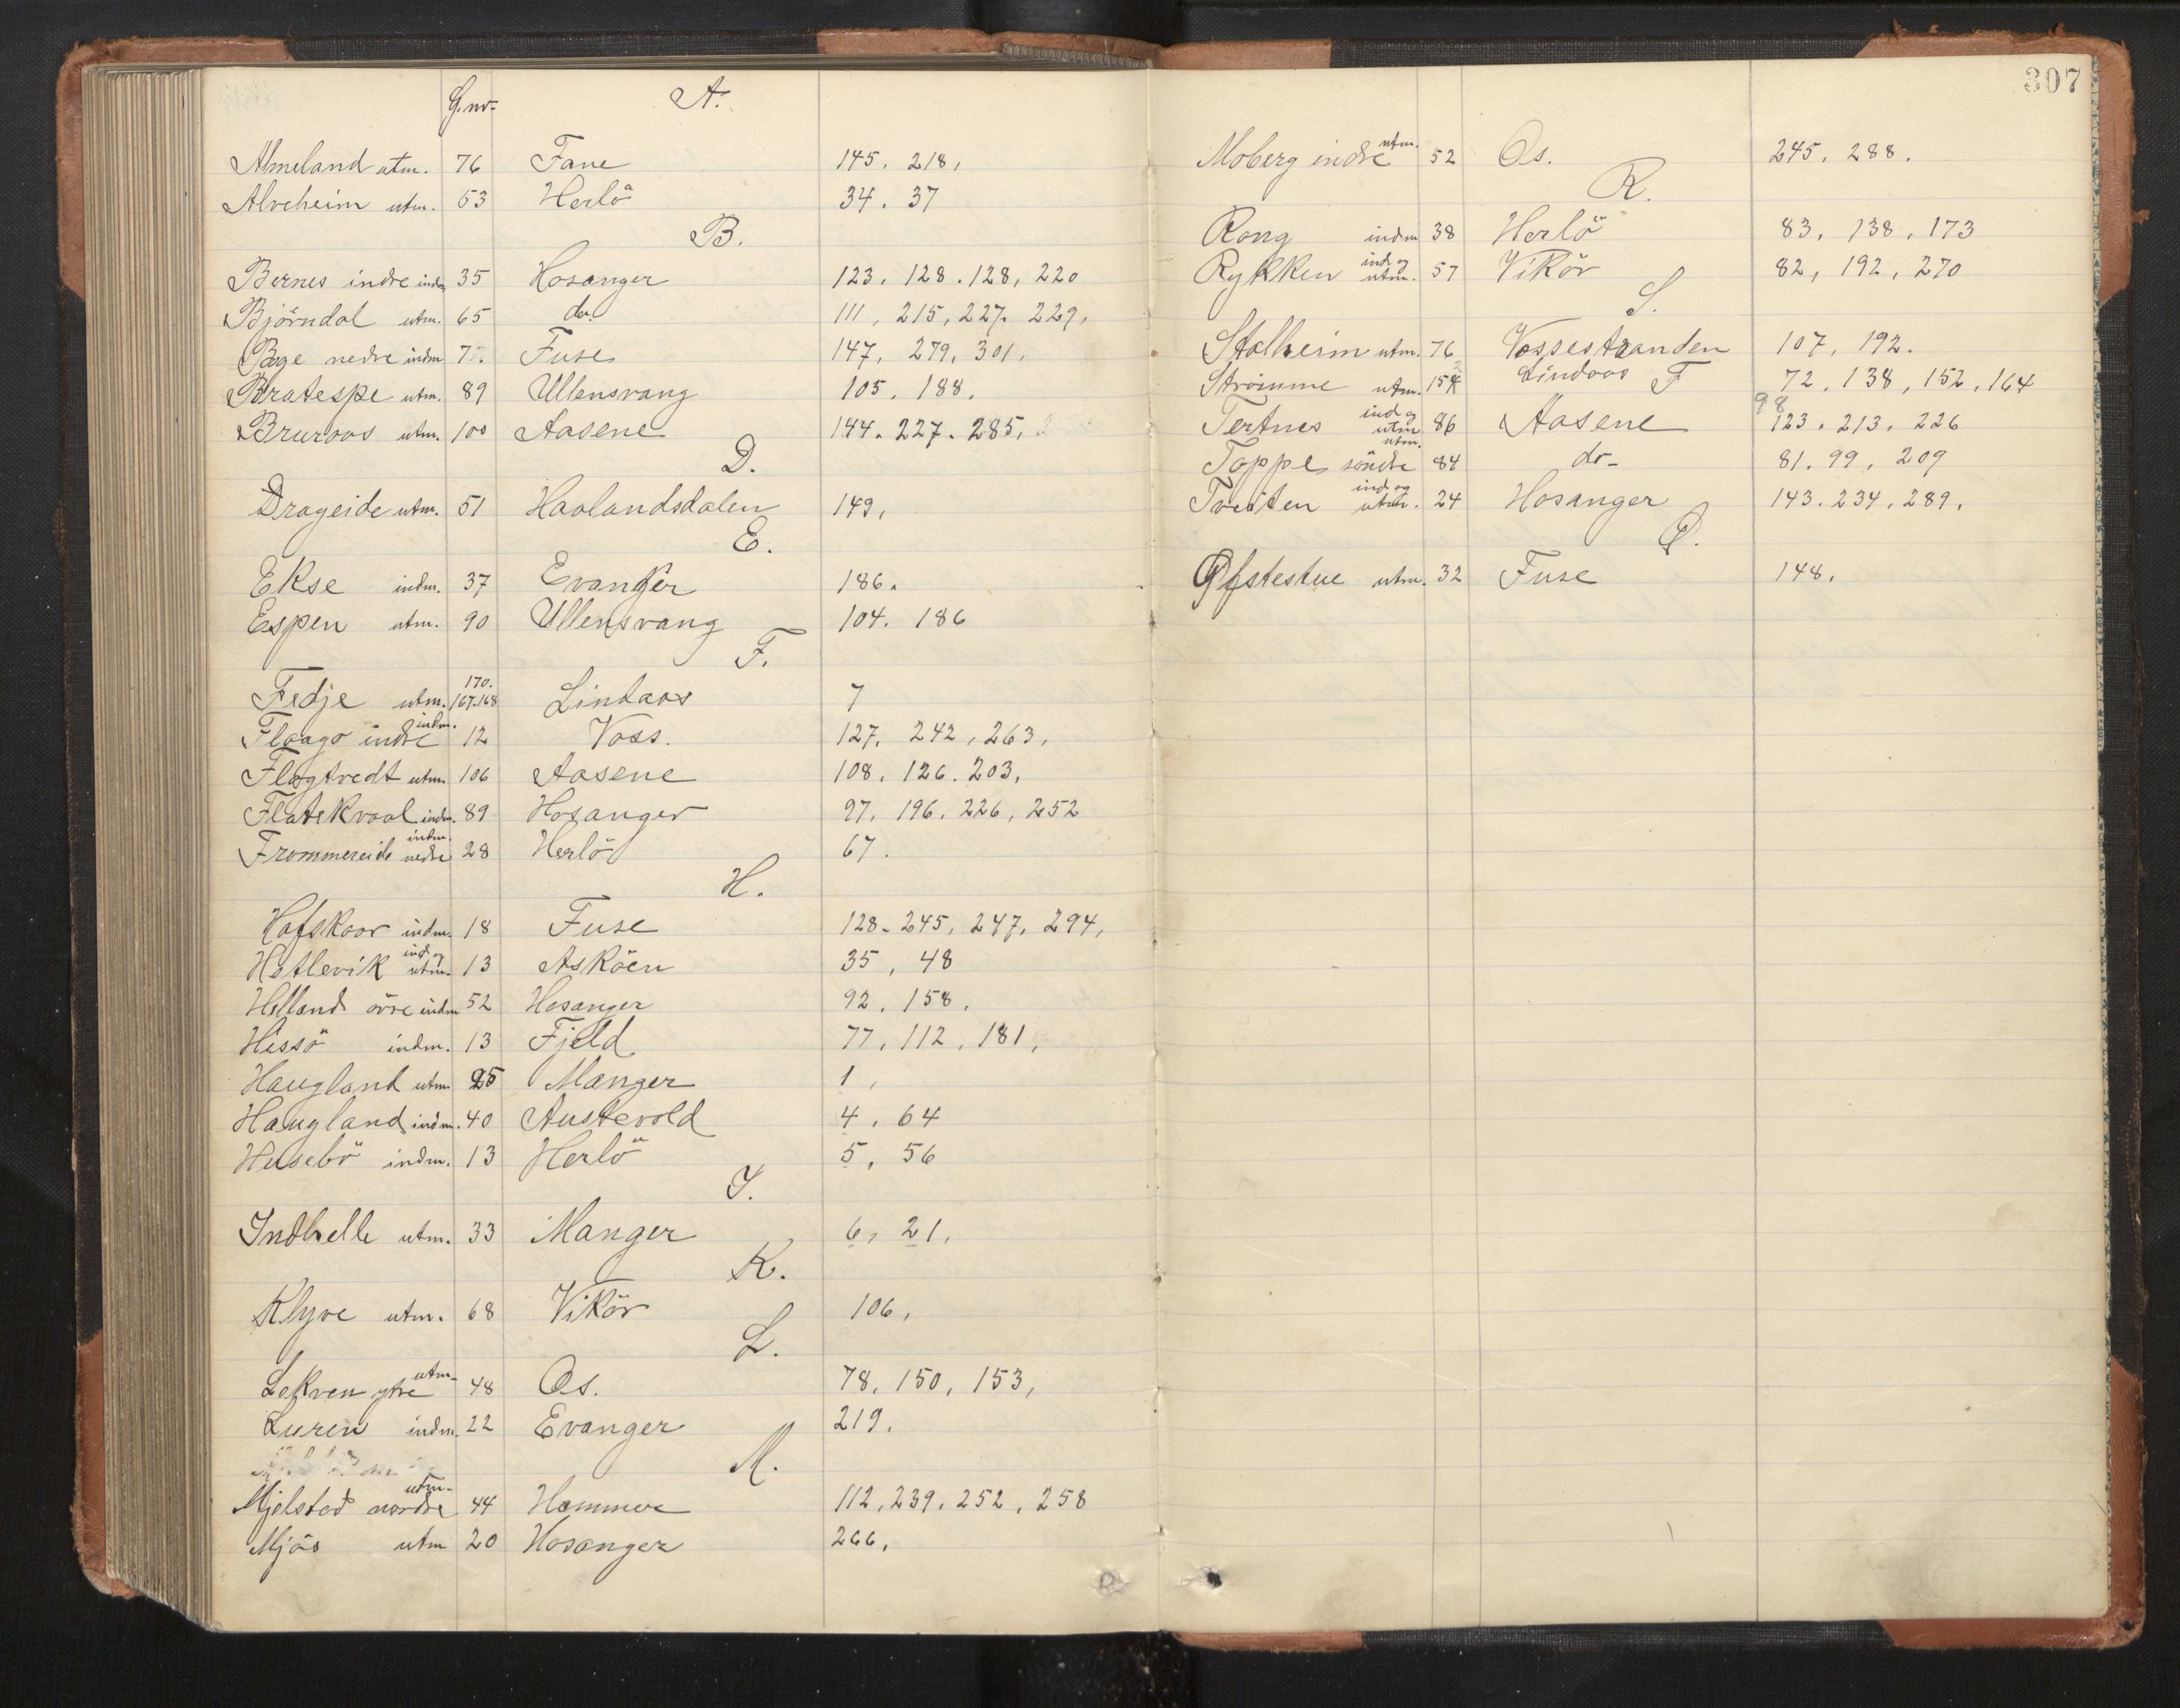 G.nr. A.
Almeland utm. 76 Fane 145. 218,
Alvcheim utm. 53 Herlö 34. 37
B.
Bernes indre indm. 35 Hosanger 123. 128. 128, 220
Björndal utm. 65 do. 111, 215, 227. 229,
Boge nedre indm 7 Fuse 147, 279, 301.
Bratespe utm. 89 Ullensvang 105. 188.
Bruraas utm. 100 Aasene 144. 227. 285.
D.
Drageide utm. 51 Haalandsdalen 149,
E.
Ekse indm. 37 Evanger 186.
Espen utm. 90 Ullensvang 104. 186
F.
Fedje utm. 170. 167.168 Lindaas 7
Flaage indre indm. 12 Voss. 127, 242, 263,
Flagtvedt utm. 106 Aasene 108. 126. 203,
Flatekvaal indm. 89 Hosanger 97. 196. 226, 252
Frommereide nedre indm. 28 Herlö 67.
H.
Hafskaar indm. 18 Fuse 128. 245, 247, 294,
Hetlevik ind og utm. 13 Asköen 35, 48
Helland övre indm 52 Hosanger 92. 158.
Hissö indm. 13 Fjeld 77, 112, 181,
Haugland utm 25 Manger 1,
Haugland indm. 40 Austevold 4, 64
Husebö indm. 13 Herlö 5, 56
I.
Indhelle utm. 33 Manger 6, 21,
K.
Klyve utm. 68 Vikör 106,
L.
Lekven ytre utm. 48 Os. 78, 150, 153,
Luren indm. 22 Evanger 219.
M.
Mjelsted nordre utm. 44 Hammer 112, 239. 252, 258
Mjös utm 20 Hosanger 266,
307
Moberg indre utm. 52 Os. 245. 288.
R.
Rong indm 38 Herlö 83, 138, 173
Rykken ind og utm. 57 Vikör 82, 192, 270
S.
Stalheim utm. 76 Vossestranden 107, 192.
Strömme utm. Lindaas 72. 138, 152. 164
T
Tertnes ind og utm 86 Aasene 98 123. 213. 226
Toppe söndre utm. 84 do- 81. 99, 209
Tveiten ind og utm. 24 Hosanger 143. 234, 289.
Ø.
Øfstestue utm. 32 Fuse 148.